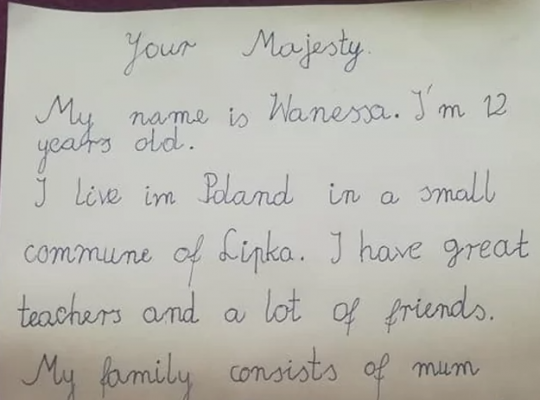 Your Majesty.
My name is Wanessa. I'm 12
years old.
I live im Poland in a small
commune of Lipka. I have great
teachers and a lot of friends.
My family consists of mum